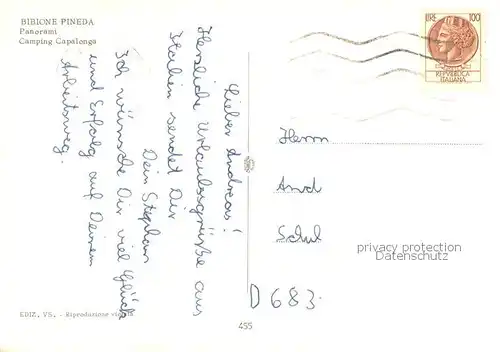 BIBIONE PINEDA
Panorami
Camping Capalonga
LIRE 100
REPVBBLICA
ITALIANA
Lieber Andreas!
Herzliche Urlaubsgrüße aus
Italien sendet Dir
Dein Stephan
Ich wünsche Dir viel Glück
und Erfolg auf Deinem
Arbeitsweg.
Herrn
And
Schul
privacy protection
Datenschutz
D 683
EDIZ. VS. - Riproduzione vietata
455